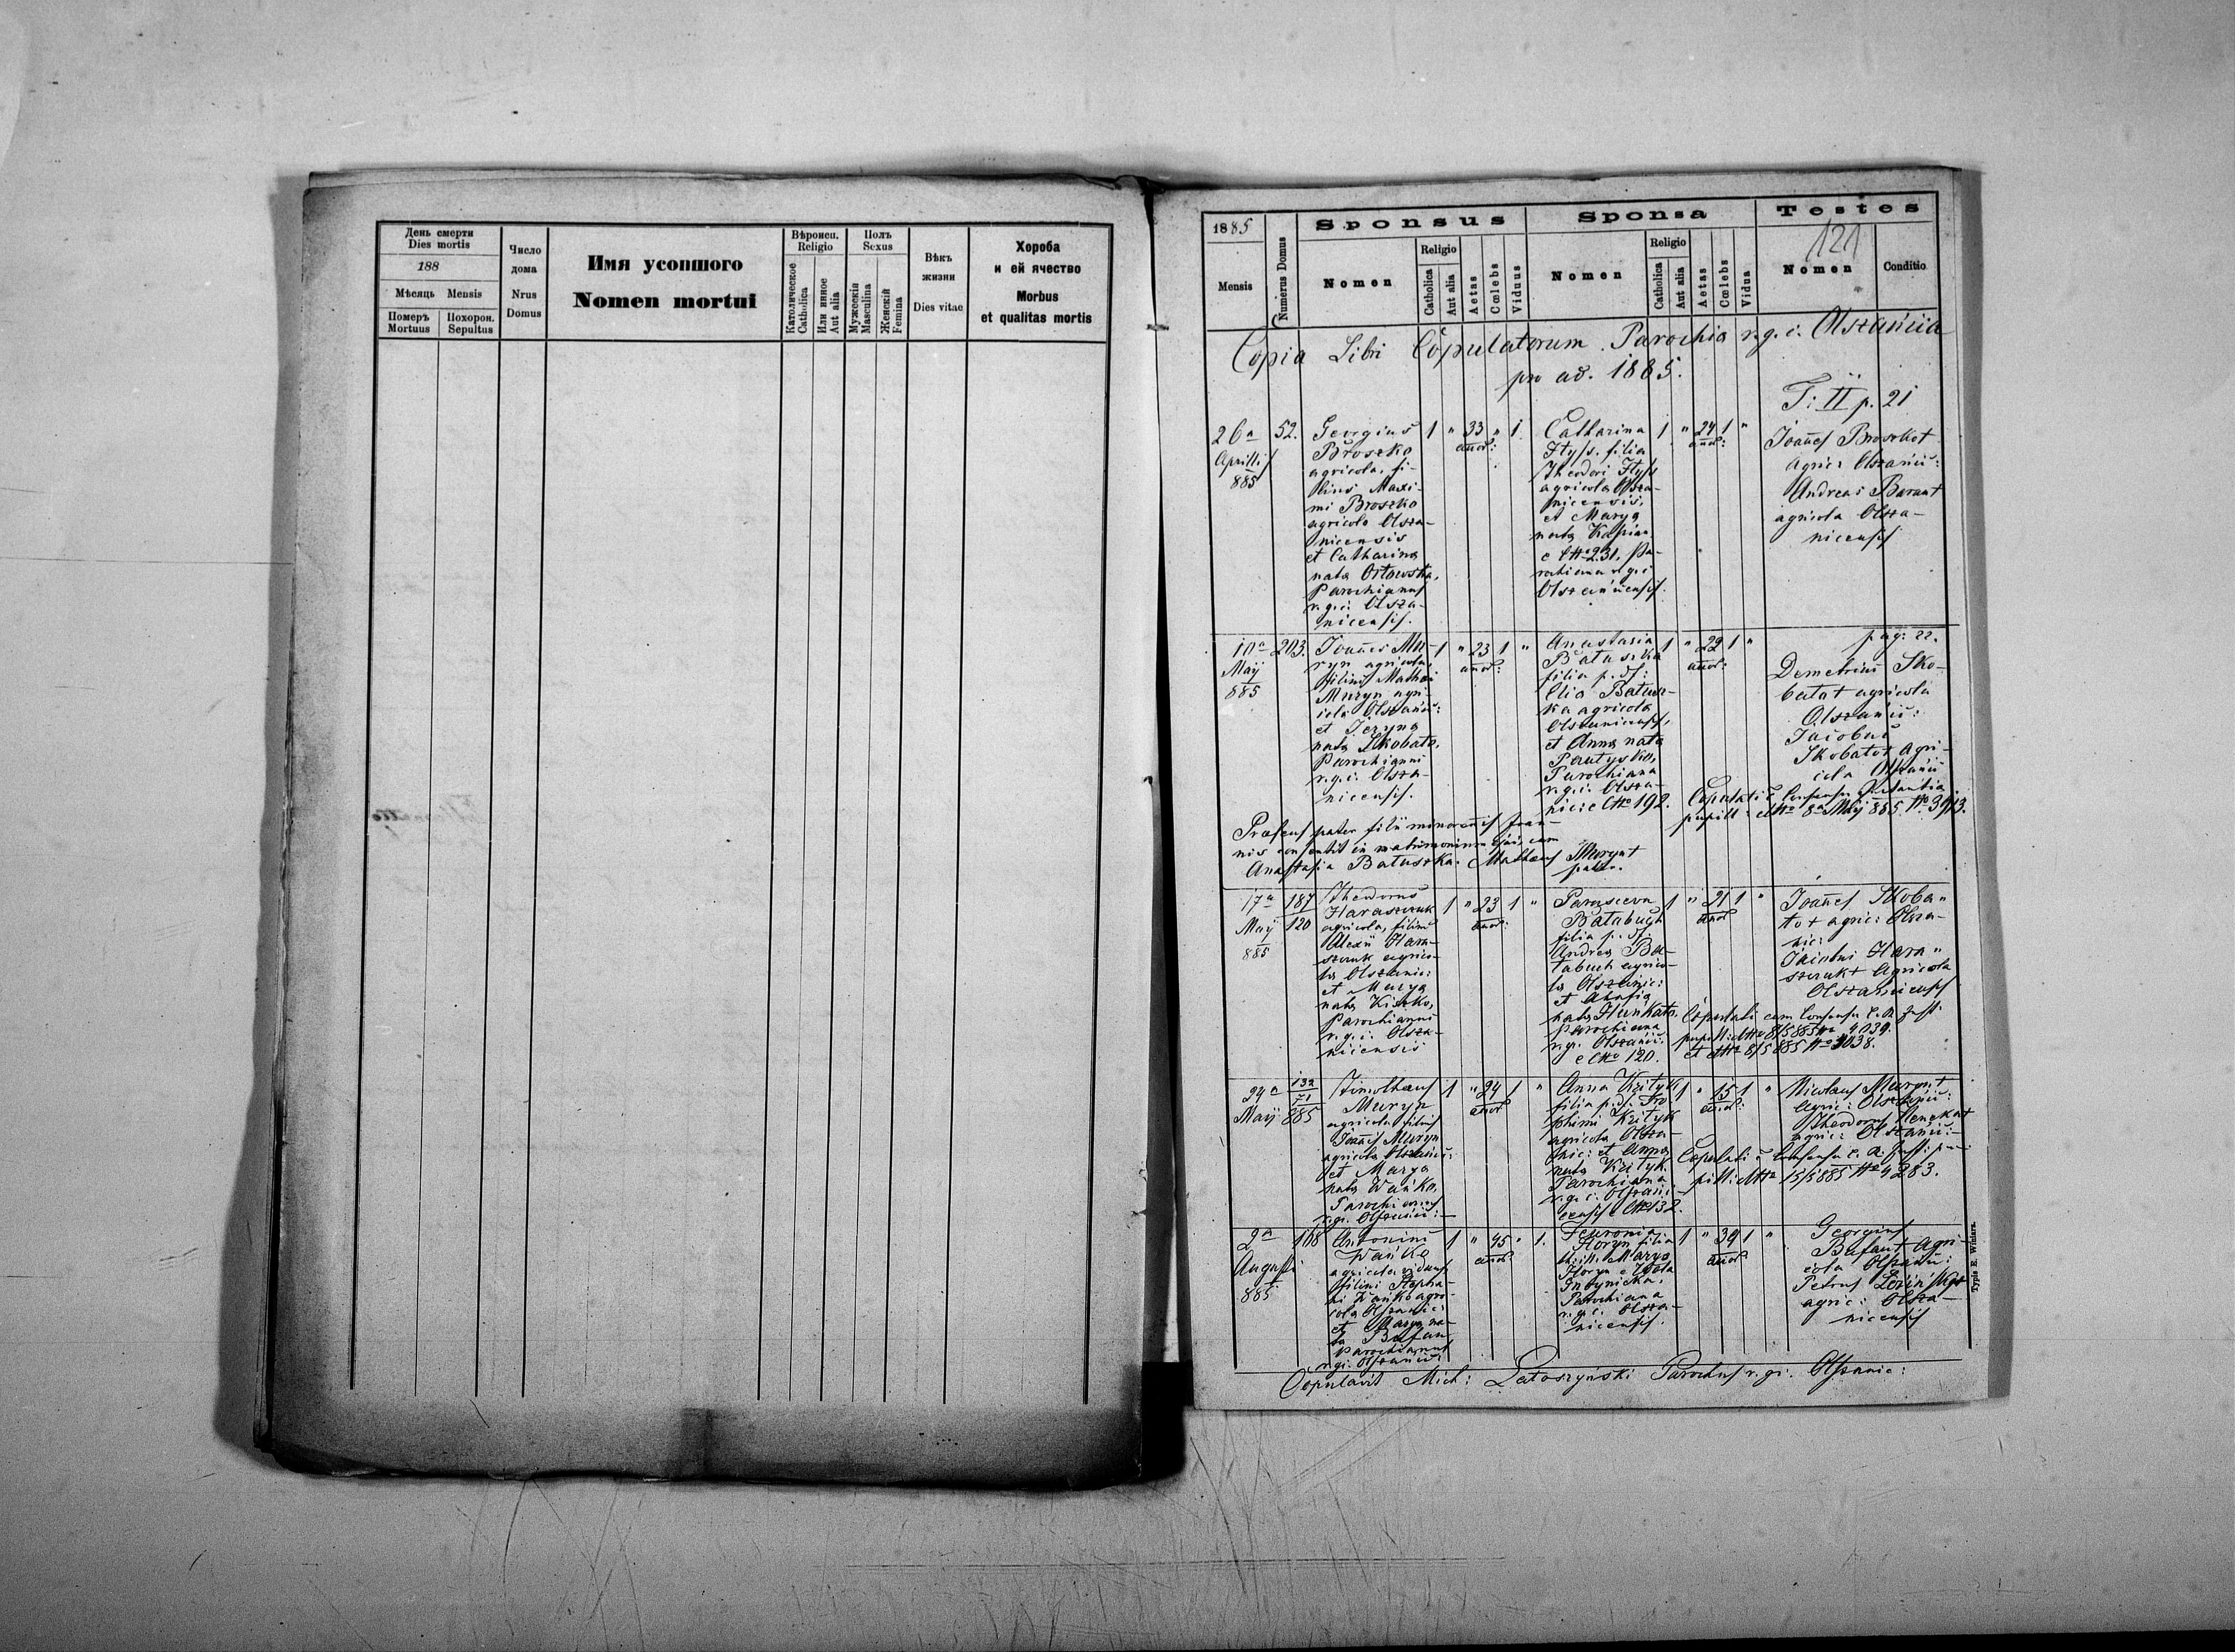 День смерти
Dies mortis
188
Мѣсяць Mensis
Померъ
Mortuus
Похорон.
Sepultus
Число
дома
Nrus
Domus
Имя усопшого
Nomen mortui
Вѣроисп.
Religio
Католическое
Catholica
Или инное
Aut alia
Полъ
Sexus
Мужескій
Masculina
Женскій
Femina
Вѣкъ
жизни
Dies vitae
Хороба
и ей ячество
Morbus
et qualitas mortis
1885
Mensis
Numerus Domus
Sponsus
Nomen
Religio
Catholica
Aut alia
Aetas
Cœlebs
Vidus
Sponsa
Nomen
Religio
Catholica
Aut alia
Aetas
Cœlebs
Vidua
Testes
121
Nomen
Conditio
Copia Libri Copulatorum Parochia r.g.c. Olszanica
pro ad. 1885.
T: II p. 21
26a
Aprilis
885
52.
Georgius
Broszko
agricola, fi-
lius Maxi-
mi Broszko
agricola Olsza-
nicensis
et Catharina
nata Orłowska,
Parochianus
r.g.c. Olsza-
nicensis.
1 " 33 " 1.
annor:
Catharina
Hyls. filia
Theodori Hyls
agricola Olsza-
nicensis,
et Marya
nata
e CNo 231, Pa-
rochiana r.g.c
Olszanicensis.
1 " 24 1 "
annor:
Joannes Broszko†
agric: Olszanic:
Andreas Baran†
agricola Olsza-
nicensis
10a
May
885
203.
Joannes Mu-
ryn agricola,
filius Mathei
Muryn agri-
cola Olszanic:
et Jeryna
nata Skobato,
Parochianus
r.g.c. Olsza-
nicensis.
1 " 23 1 "
annor:
Anastasia
Batuszka
filia p. df:
Elia Batusz-
ka agricola
Olszanicensis,
et Anna nata
Parochiana
r.g.c. Olsza-
nic: e CNo 192.
1 " 22 1 "
annor:
pag: 22.
Demetrius Sko-
bato† agricola
Olszanic:
Jacobus
Skobato† agri-
cola Olszanic
Copulati c Consensu
pupill: dtto 8a May 885 No 3913.
Præsens pater filii minorennis Joan-
nis consentit in matrimonium ejus cum
Anastasia Batuszka. Matheus Muryn†
pater.
17a
May
885
187
120
Theodorus
Haraszczuk
agricola, filius
Alexii Hara-
szczuk agrico-
la Olszanic:
et Marya
nata Kiszko,
Parochianus
r.g.c. Olsza-
nicensis
1 " 23 1 "
annor:
Parascewa
Bałabuch
filia p. df:
Andrea Ba-
łabuch agrico-
la Olszanic:
et Ahafia
nata Hunkało.
Parochiana
r.g.c. Olszanic:
e CNo 120.
1 " 21 1 "
annor
Joannes Skoba"
to† agric: Olsza-
nic:
Jacobus Hara"
szczuk† agricola
Olszanicensis
Copulati cum Consensu
pupill: dtto 8/5 885 No 4039.
et dtto 8/5 885 No 4038.
24a
Maij
132
71
885
Timotheus
Muryn
agricola filius
Joannis Muryn
agricola Olszanic:
et Marya
nata Wańko,
Parochianus
r.g.c. Olszanic:
1 " 24 1 "
annor
Anna Krityk
filia p. df: Tro
phimi Krityk
agricola Olsza-
nic: et Anna
nata Krityk.
Parochiana
r.g.c. Olszani-
censis e CNo 132.
1 " 15 1 "
annor:
Nicolaus Muryn†
agric: Olszanic:
Theodorus
agric: Olszanic:
Copulati c Consensu
pill: dtto 15/5 885 No 4283.
2a
Augusti
885
168
Antonius
Wańko
agricola viduus
filius Stepha-
ni Wańko agri-
cola Olszanic:
et Marya na-
ta Bufan,
Parochianus
r.g.c. Olszanic:
1 " 45 " 1.
annor
Horyn filia
illeg. Marya
Horyn e
Parochiana
r.g.c. Olsza-
nicensis.
1 " 39 1 "
annor
Georgius
Bufan† agri-
cola Olszanic:
Petrus
agric: Olsza-
nicensis
Typis E. Winiarz.
Copulavit Mich: Parochus r.g.c. Olszanic: